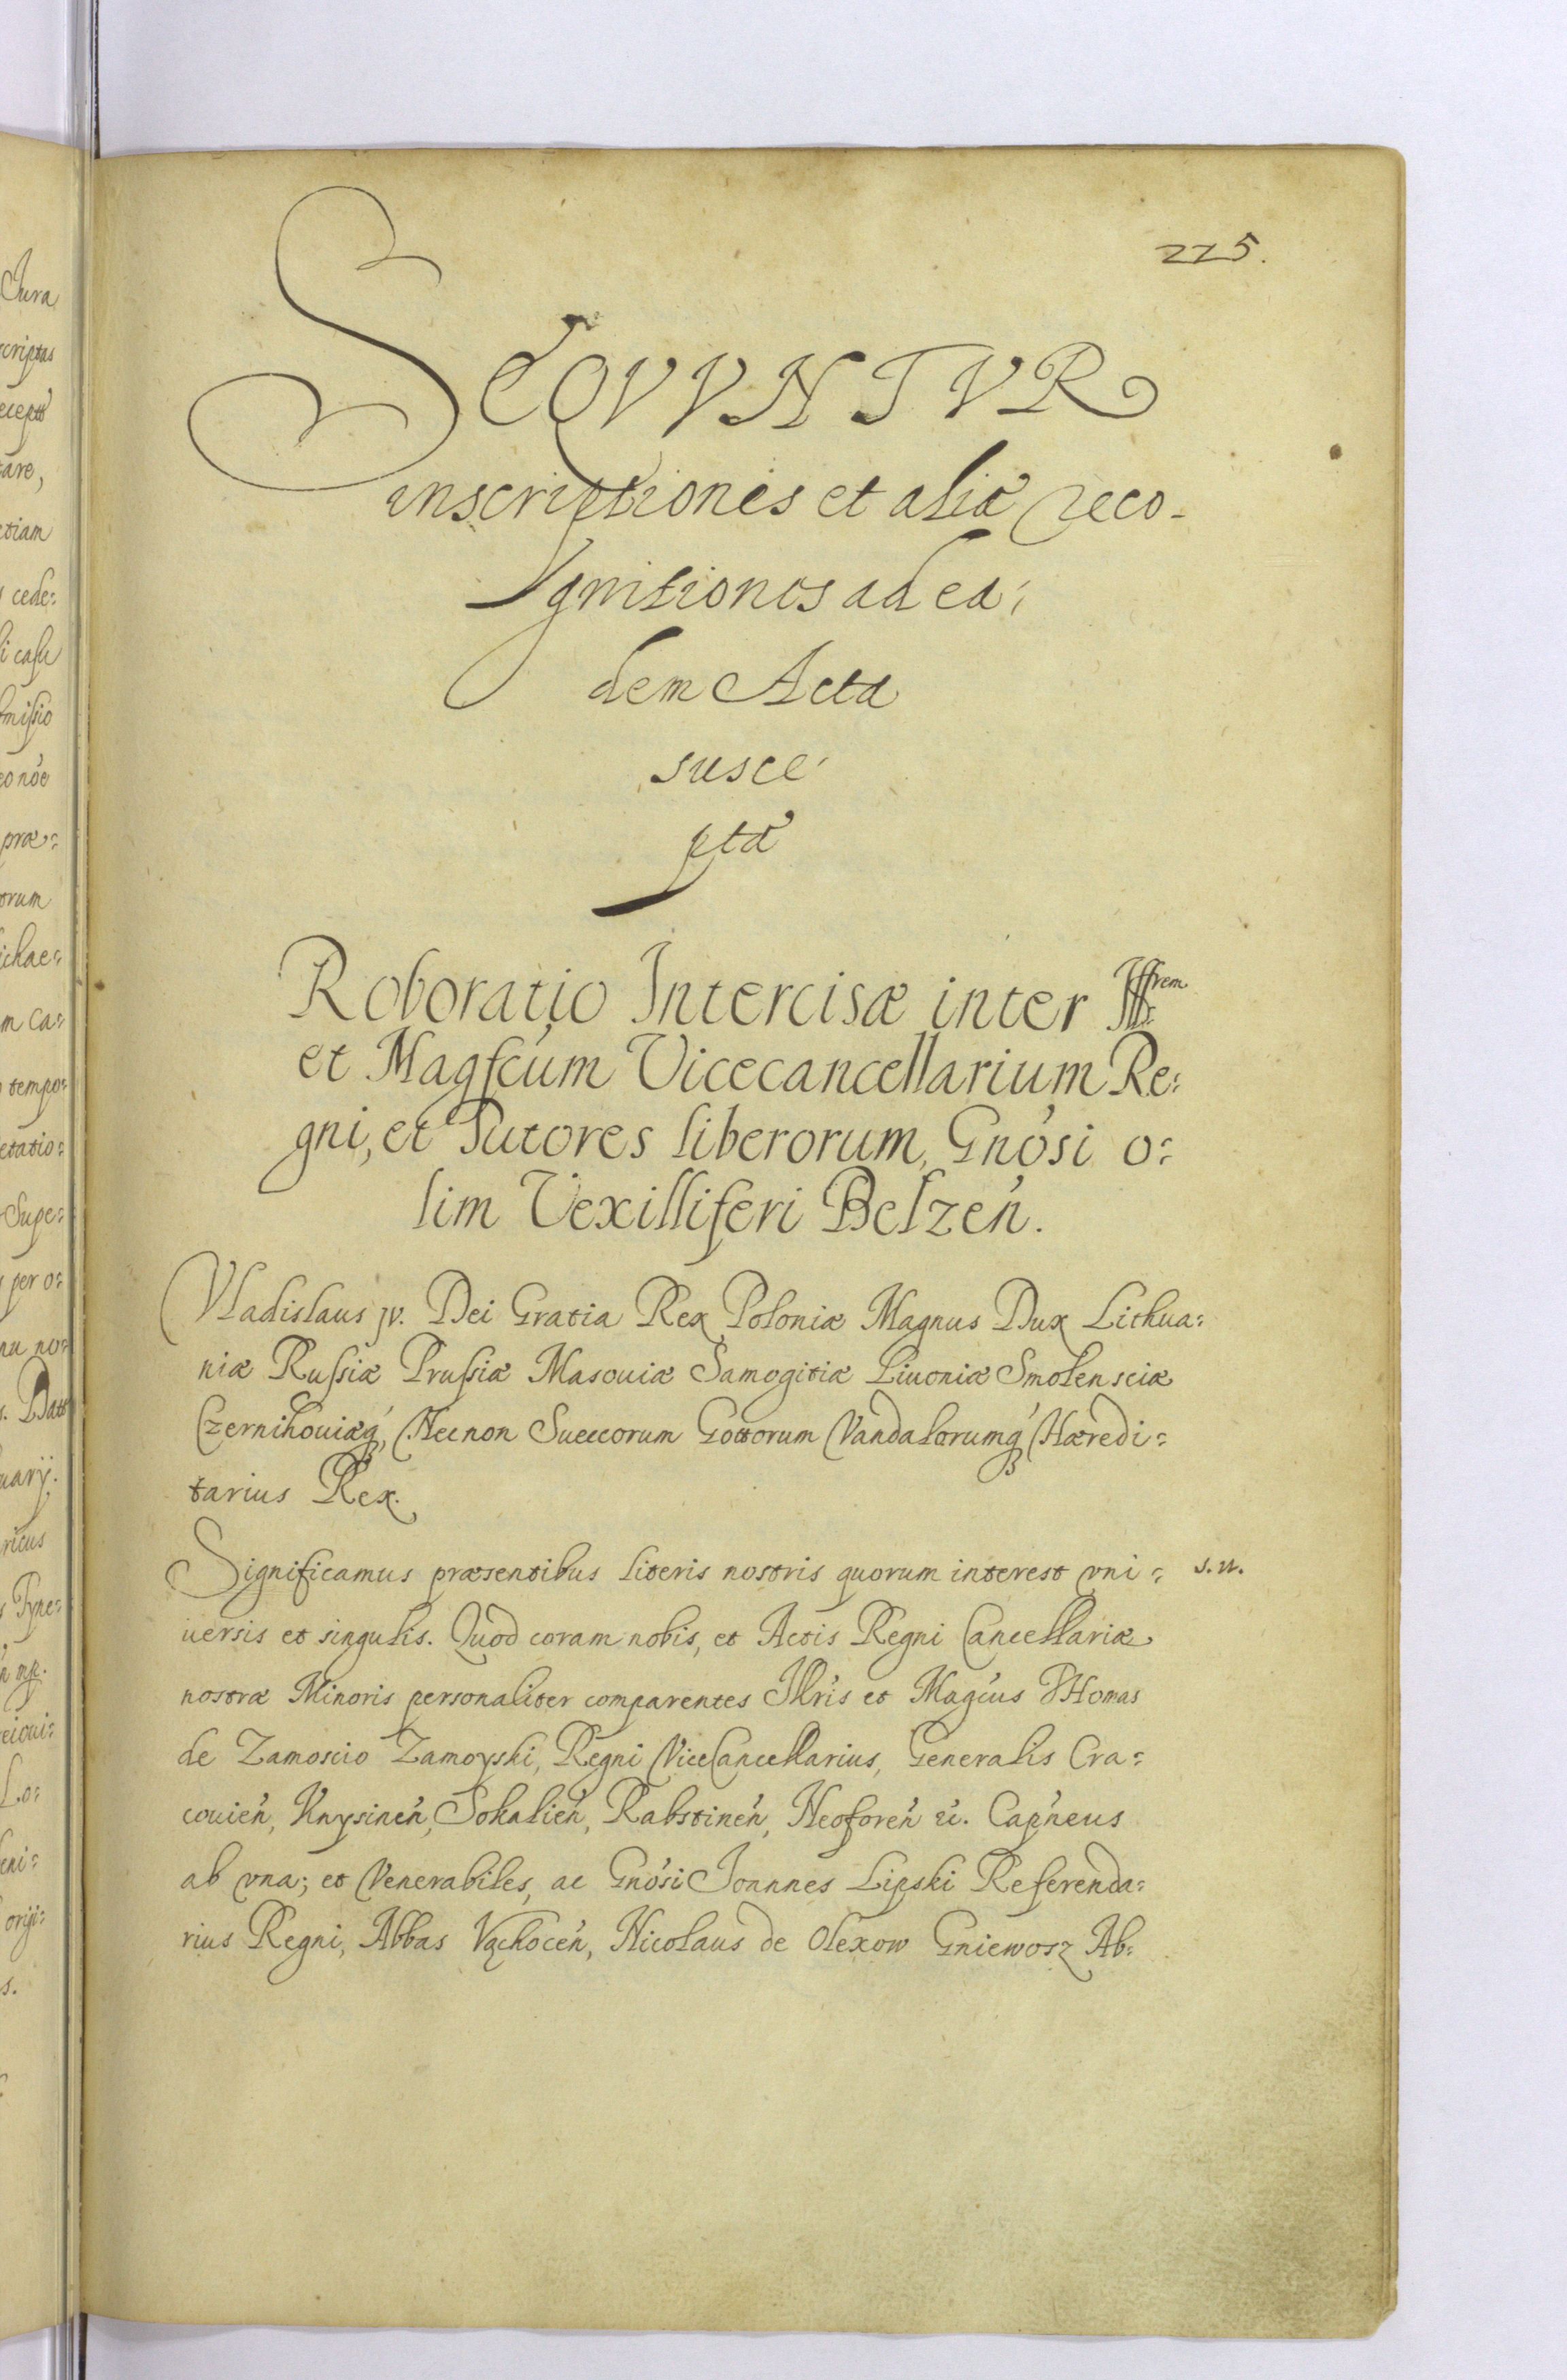 225.
SEQVVNTVR
inscriptiones et aliæ reco-
gnitiones ad ea-
dem Acta
susce-
pta
Roboratio Intercisæ inter Illrem
et Magfcum Vicecancellarium Re:
gni, et Tutores liberorum, Gnósi o:
lim Vexilliferi Belzeń.
Vladislaus jv. Dei Gratia Rex Poloniæ Magnus Dux Lithua:
niæ Russiæ Prussiæ Masouiæ Samogitiæ Liuoniæ Smolensciæ
Czernihouiæq, Necnon Sueccorum Gottorum Vandalorumq Hæredi:
tarius Rex.
Significamus præsentibus literis nostris quorum interest vni: s.n.
uersis et singulis. Quod coram nobis, et Actis Regni Cancellariæ
nostræ Minoris personaliter comparentes Illris et Magcus Thomas
de Zamoscio Zamoyski, Regni ViceCancellarius, Generalis Cra:
couień, Knysineń, Sokalień, Rabstineń, Neoforeń &. Capńeus
ab vna; et Venerabiles, ac Gnósi Joannes Lipski Referenda:
rius Regni, Abbas Vąchoceń, Nicolaus de Olexow Gniewosz Ab:
Jura
scriptas
tare,
etiam
cede:
i casu
præ:
orum
ichae:
m Ca:
tempo:
etatio:
Supe:
per o:
nu no:
uarij.
ricus
Tyne:
Lo: